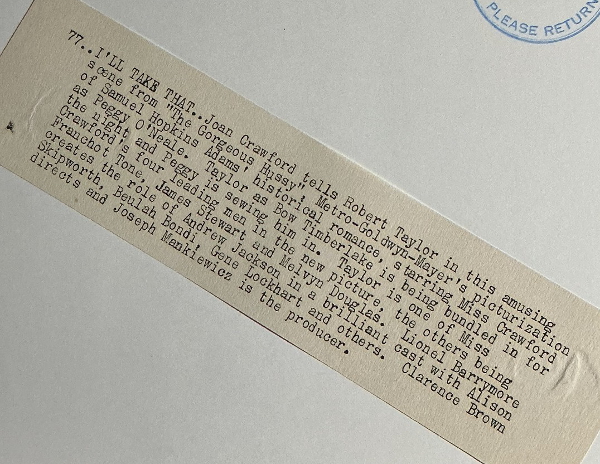 PLEASE RETURN
77..I'LL TAKE THAT..Joan Crawford tells Robert Taylor in this amusing
scene from "The Gorgeous Hussy", Metro-Goldwyn-Mayer's picturization
of Samuel Hopkins Adams' historical romance, starring Miss Crawford
as Peggy O'Neale. Taylor as Bow Timberlake is being bundled in for
the night and Peggy is sewing him in. Taylor is one of Miss
Crawford's four leading men in the new picture, the others being
Franchot Tone, James Stewart and Melvyn Douglas. Lionel Barrymore
creates the role of Andrew Jackson in a brilliant cast with Alison
Skipworth, Beulah Bondi, Gene Lockhart and others. Clarence Brown
directs and Joseph Mankiewicz is the producer.